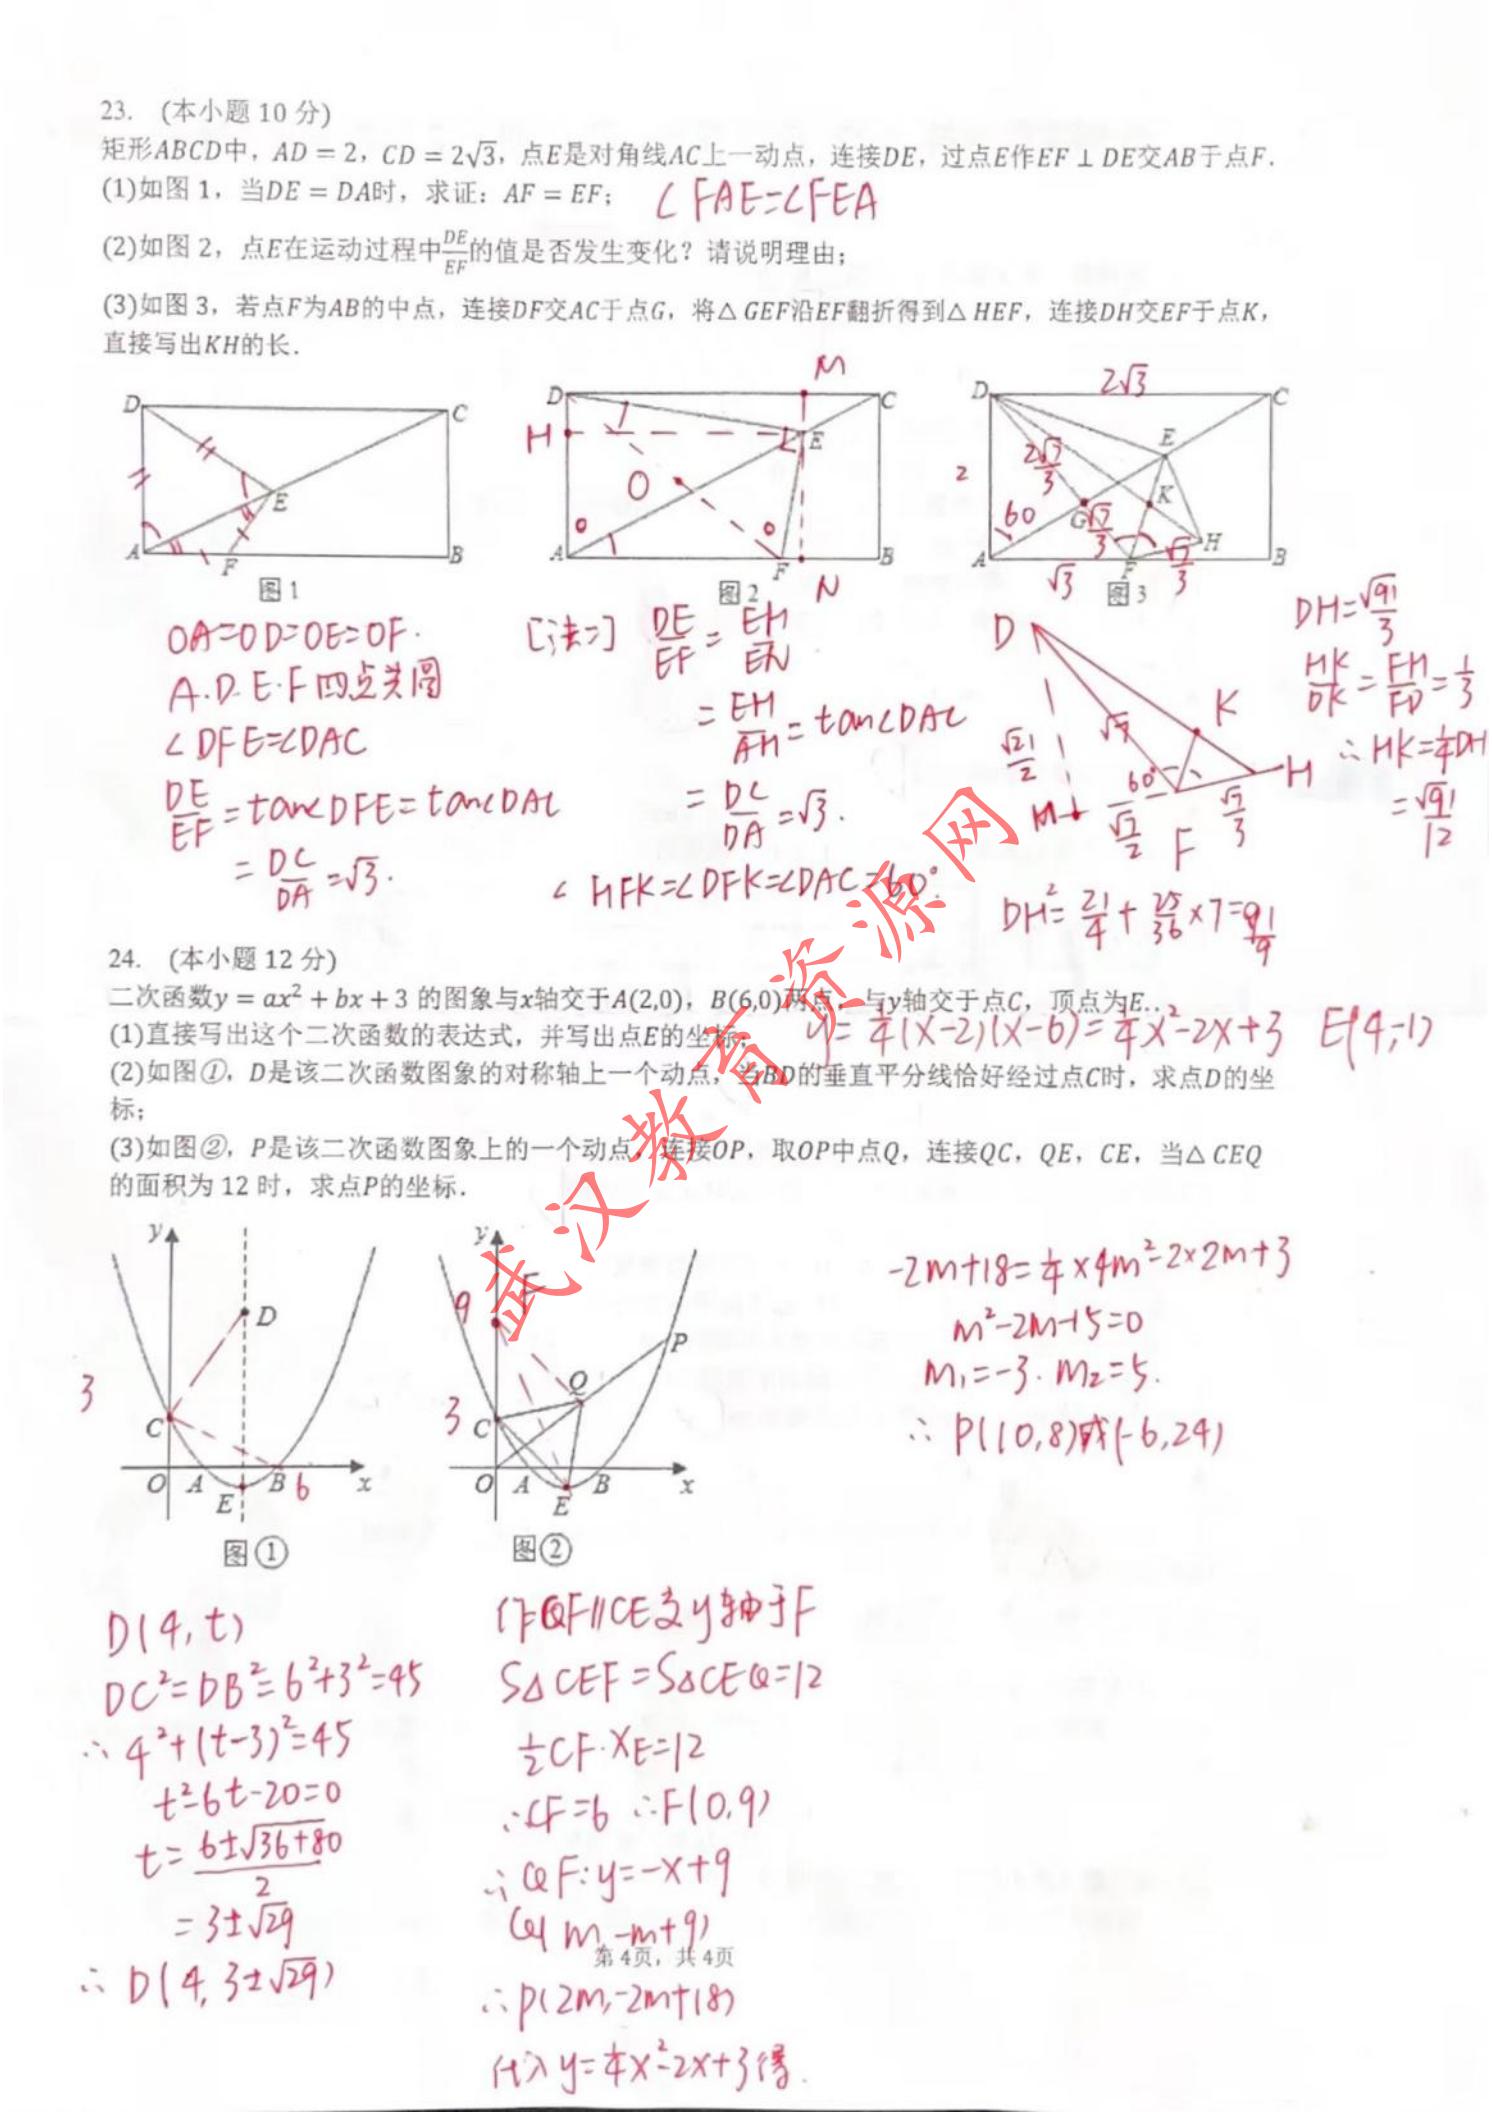 23. (本小题 10 分)
矩形ABCD中，AD = 2，CD = 2√3，点E是对角线AC上一动点，连接DE，过点E作EF ⊥ DE交AB于点F.
(1)如图 1，当DE = DA时，求证：AF = EF； ∠FAE=∠FEA
(2)如图 2，点E在运动过程中DE/EF的值是否发生变化？请说明理由；
(3)如图 3，若点F为AB的中点，连接DF交AC于点G，将△ GEF沿EF翻折得到△ HEF，连接DH交EF于点K，
直接写出KH的长．
D C A F B E
图1
D M C H E O A F N B
图2
D 2√3 C E 2 2√7/3 K 60 G √7/3 H √7/3 A √3 F B
图3
OA=OD=OE=OF.
A.D.E.F四点共圆
∠DFE=∠DAC
DE/EF=tan∠DFE=tan∠DAC
=DC/DA=√3.
[法二] DE/EF=EH/EN
=EH/AH=tan∠DAC
=DC/DA=√3.
∠HFK=∠DFK=∠DAC=60°.
D K H M F √7 √21/2 60° √7/2 √7/3
DH²=21/4+25/36×7=91/9
DH=√91/3
HK/DK=FH/FD=1/3
∴HK=1/4DH
=√91/12
24. (本小题 12 分)
二次函数y = ax² + bx + 3 的图象与x轴交于A(2,0)，B(6,0)两点，与y轴交于点C，顶点为E..
(1)直接写出这个二次函数的表达式，并写出点E的坐标； y=1/4(x-2)(x-6)=1/4x²-2x+3 E(4,-1)
(2)如图①，D是该二次函数图象的对称轴上一个动点，当BD的垂直平分线恰好经过点C时，求点D的坐
标；
(3)如图②，P是该二次函数图象上的一个动点，连接OP，取OP中点Q，连接QC，QE，CE，当△ CEQ
的面积为 12 时，求点P的坐标．
y D 3 C O A E B 6 x
图①
y 9 F P Q 3 C O A E B x
图②
-2m+18=1/4×4m²-2×2m+3
m²-2m-15=0
m₁=-3. m₂=5.
∴P(10,8)或(-6,24)
D(4,t)
DC²=DB²=6²+3²=45
∴4²+(t-3)²=45
t²-6t-20=0
t=6±√36+80/2
=3±√29
∴D(4,3±√29)
作QF∥CE交y轴于F
S△CEF=S△CEQ=12
1/2CF·XE=12
∴CF=6 ∴F(0,9)
∴QF:y=-x+9
Q(m,-m+9)
第 4页，共 4页
∴P(2m,-2m+18)
代入y=1/4x²-2x+3得.
武汉教育资源网